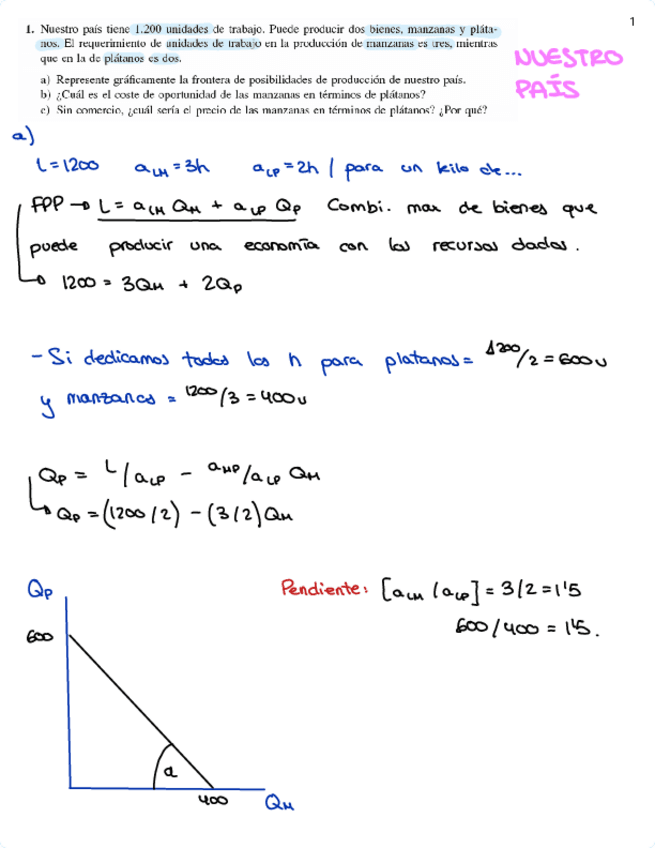 1
1. Nuestro país tiene 1.200 unidades de trabajo. Puede producir dos bienes, manzanas y pláta-
nos. El requerimiento de unidades de trabajo en la producción de manzanas es tres, mientras
que en la de plátanos es dos.
a) Represente gráficamente la frontera de posibilidades de producción de nuestro país.
b) ¿Cuál es el coste de oportunidad de las manzanas en términos de plátanos?
c) Sin comercio, ¿cuál sería el precio de las manzanas en términos de plátanos? ¿Por qué?
NUESTRO
PAÍS
a)
L=1200 aLM=3h aLP=2h / para un kilo de...
FPP → L = aLM QM + aLP QP Combi. max de bienes que
puede producir una economía con los recursos dados.
↳ 1200 = 3QM + 2QP
- Si dedicamos todos los h para platanos = 1200/2 = 600u
y manzanas = 1200/3 = 400u
QP = L/aLP - aMP/aLP QM
↳ QP = (1200/2) - (3/2)QM
QP
Pendiente: [aLM/aLP] = 3/2 = 1'5
600/400 = 1'5.
600
a
400
QM